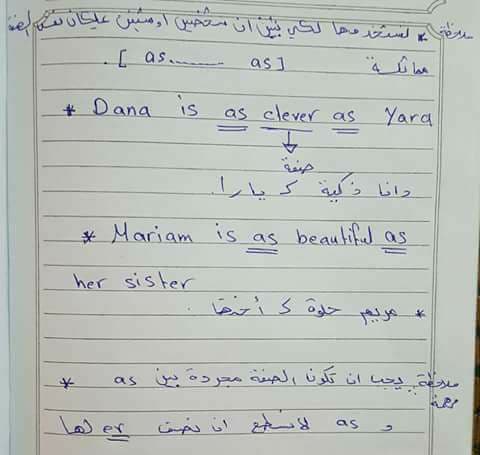 ملاحظة * نستخدمها لكي نبين ان شخصين او شيئين يملكان نفس الصفة
مماثلة [ as ........ as ] .
* Dana is as clever as Yara
صفة
دانا ذكية كـ يارا.
* Mariam is as beautiful as
her sister
* مريم حلوة كـ أختها .
ملاحظة مهمة * يجب ان تكون الصفة مجردة بين as
و as لا نستطيع ان نضيف er لها